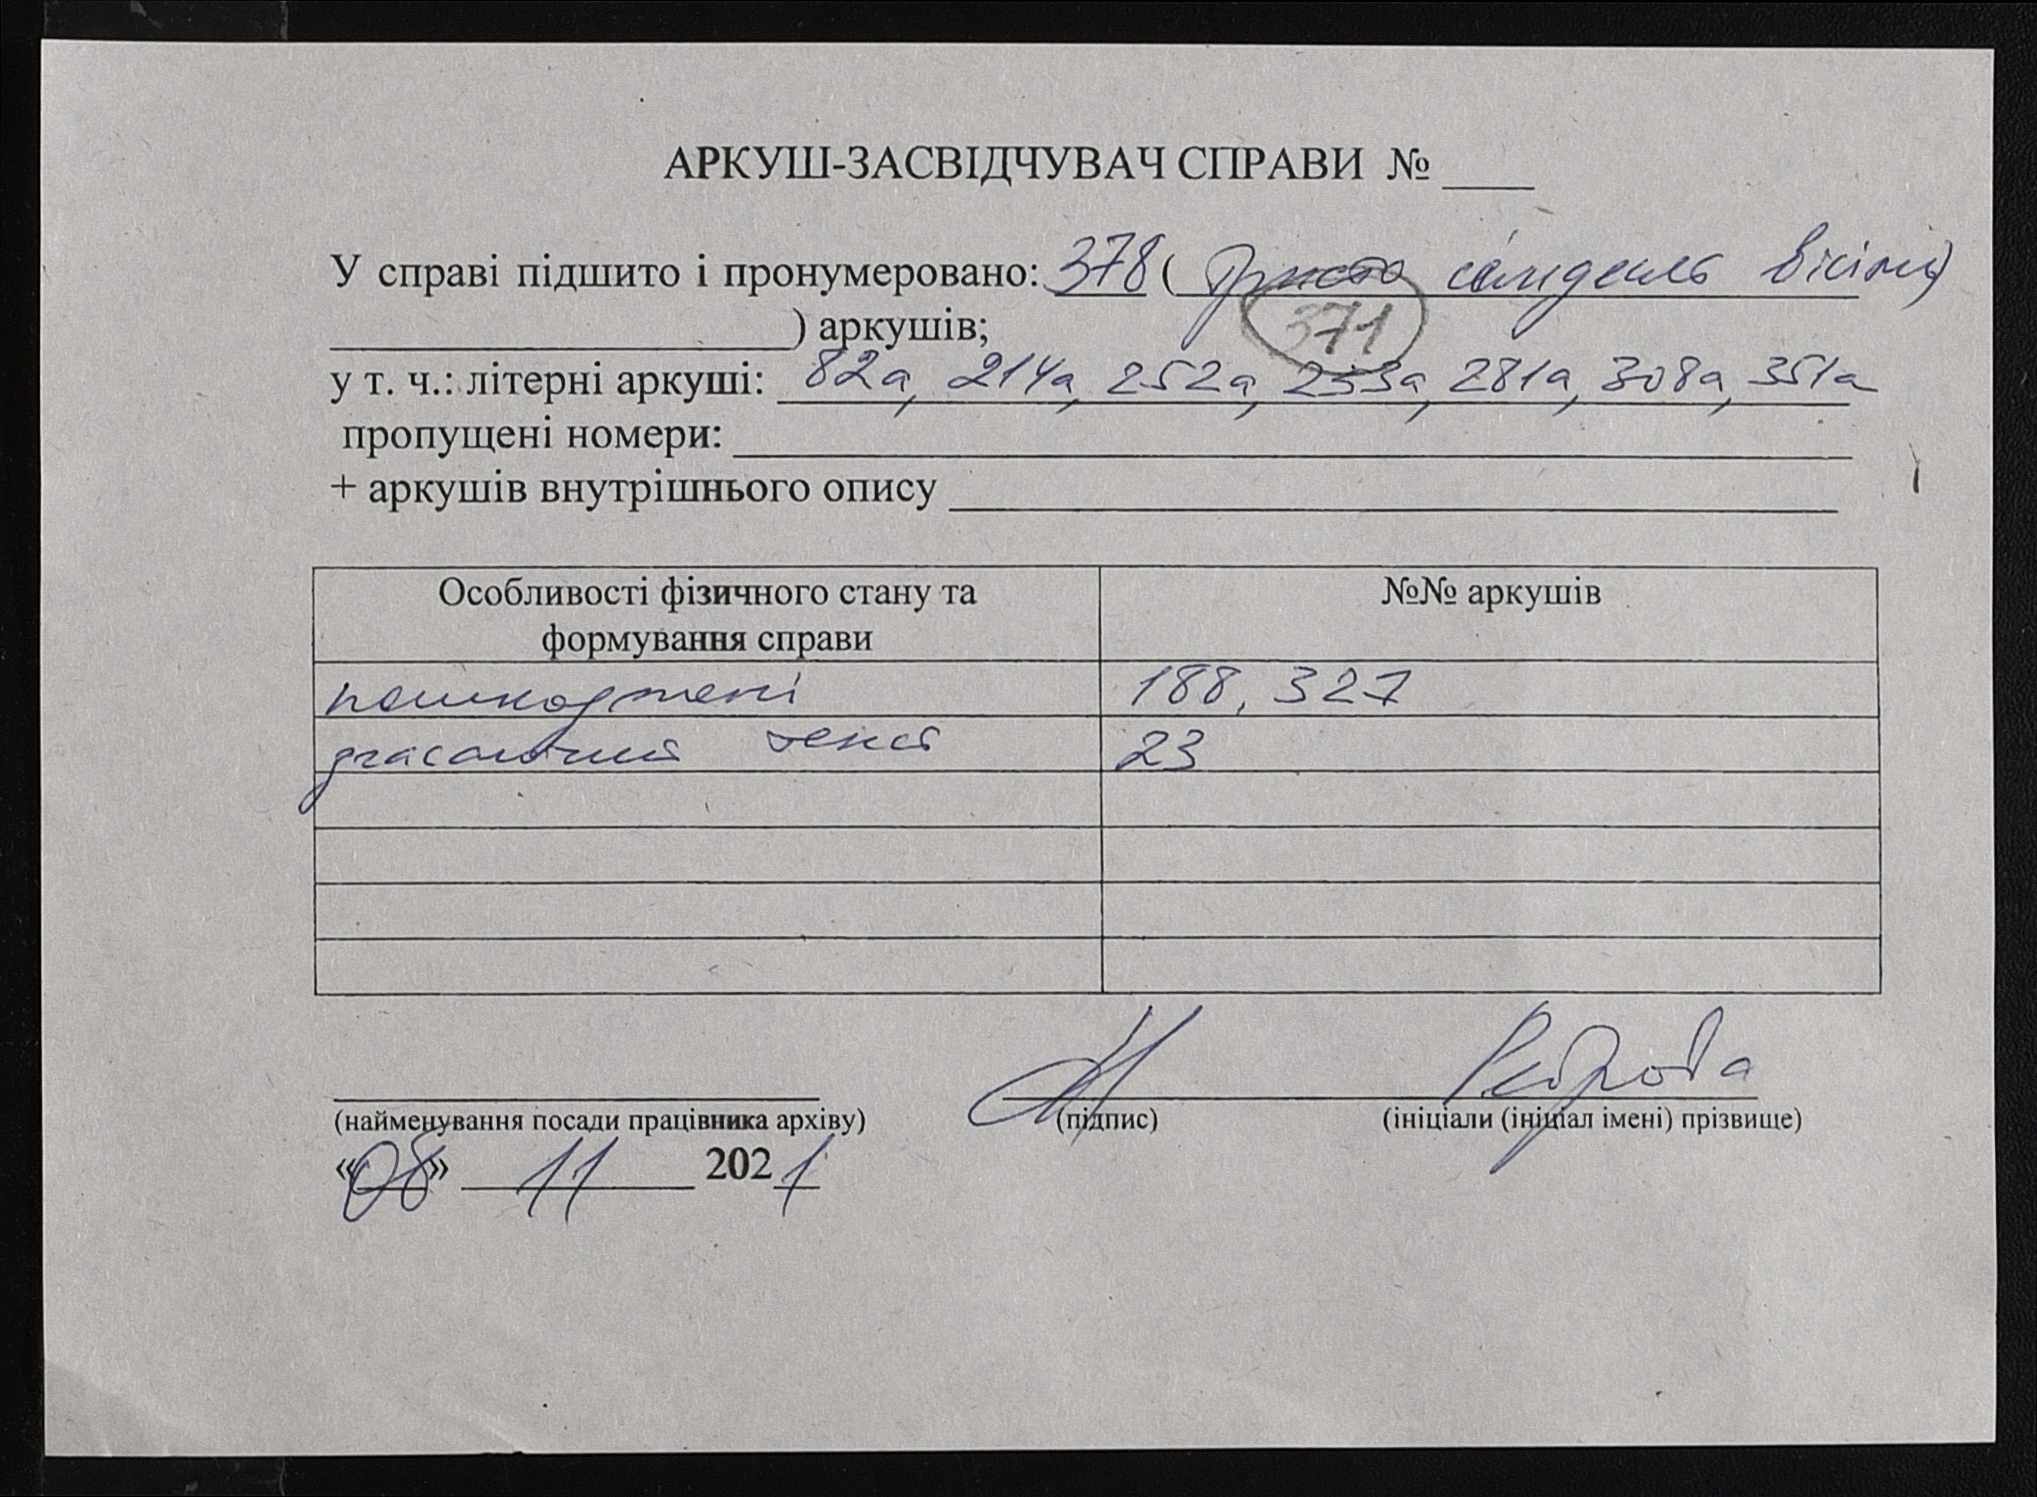 АРКУШ-ЗАСВІДЧУВАЧ СПРАВИ № ____
У справі підшито і пронумеровано: 378 ( Триста сімдесят вісім)
371
) аркушів;
у т. ч.: літерні аркуші: 82а, 214а, 252а, 253а, 281а, 308а, 351а
пропущені номери:
+ аркушів внутрішнього опису
Особливості фізичного стану та формування справи
№№ аркушів
пошкоджені 188, 327
згасаючий текст 23
(найменування посади працівника архіву) (підпис) (ініціали (ініціал імені) прізвище)
«08» 11 2021